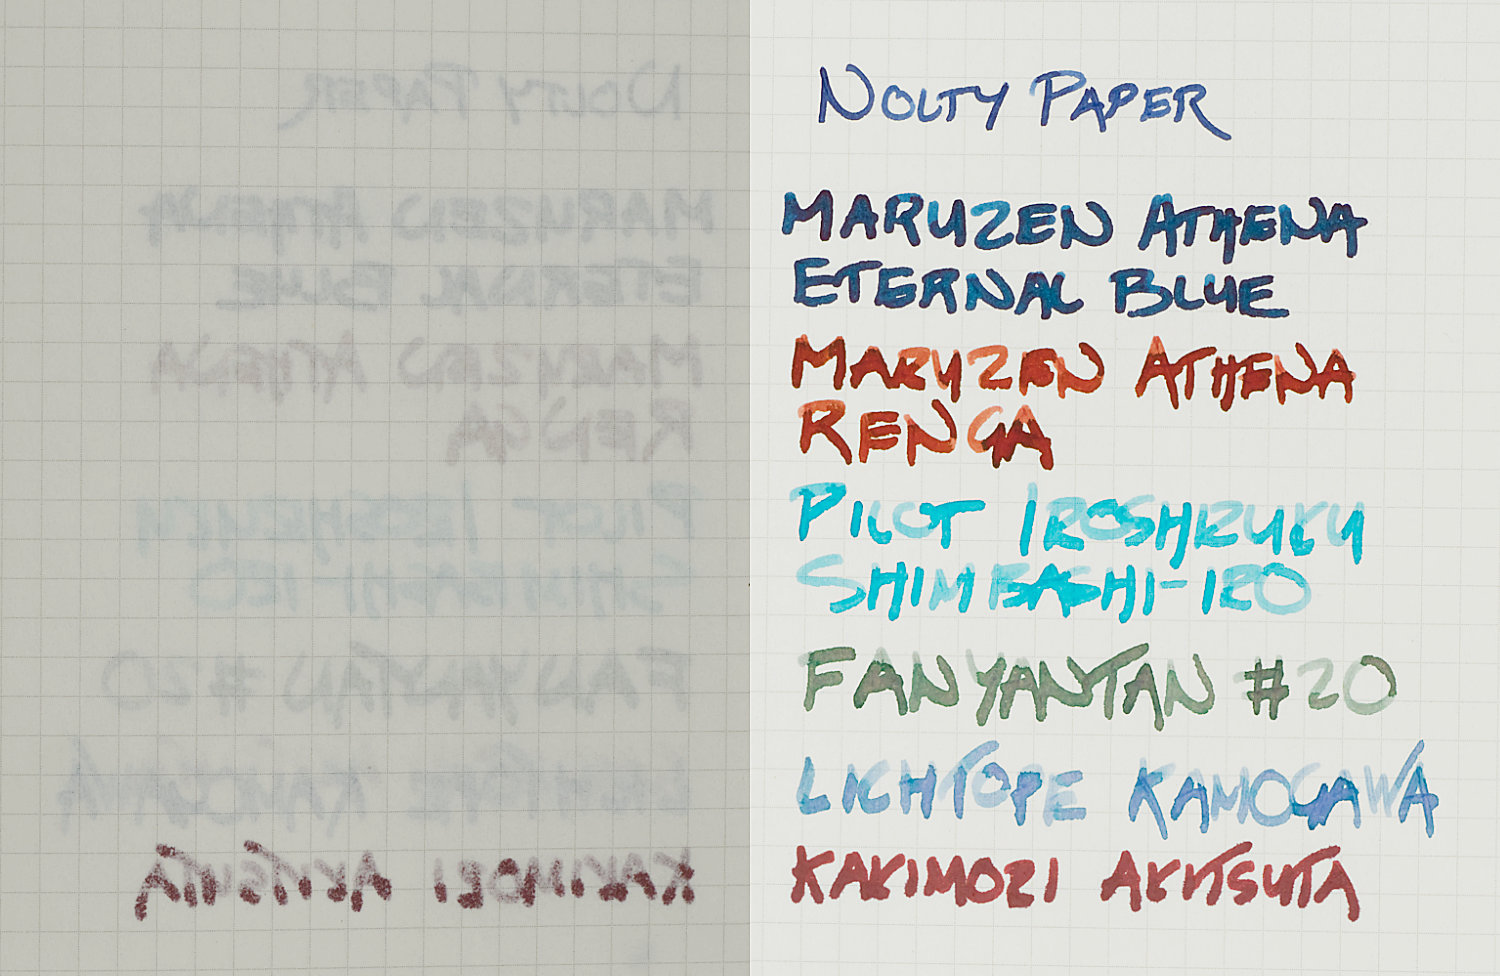 NOLTY PAPER
MARUZEN ATHENA
ETERNAL BLUE
MARUZEN ATHENA
RENGA
PILOT IROSHIZUKU
SHIMBASHI-IRO
FANYANTAN #20
LICHTOPE KAMOGAWA
KAKIMORI AKITSUTA